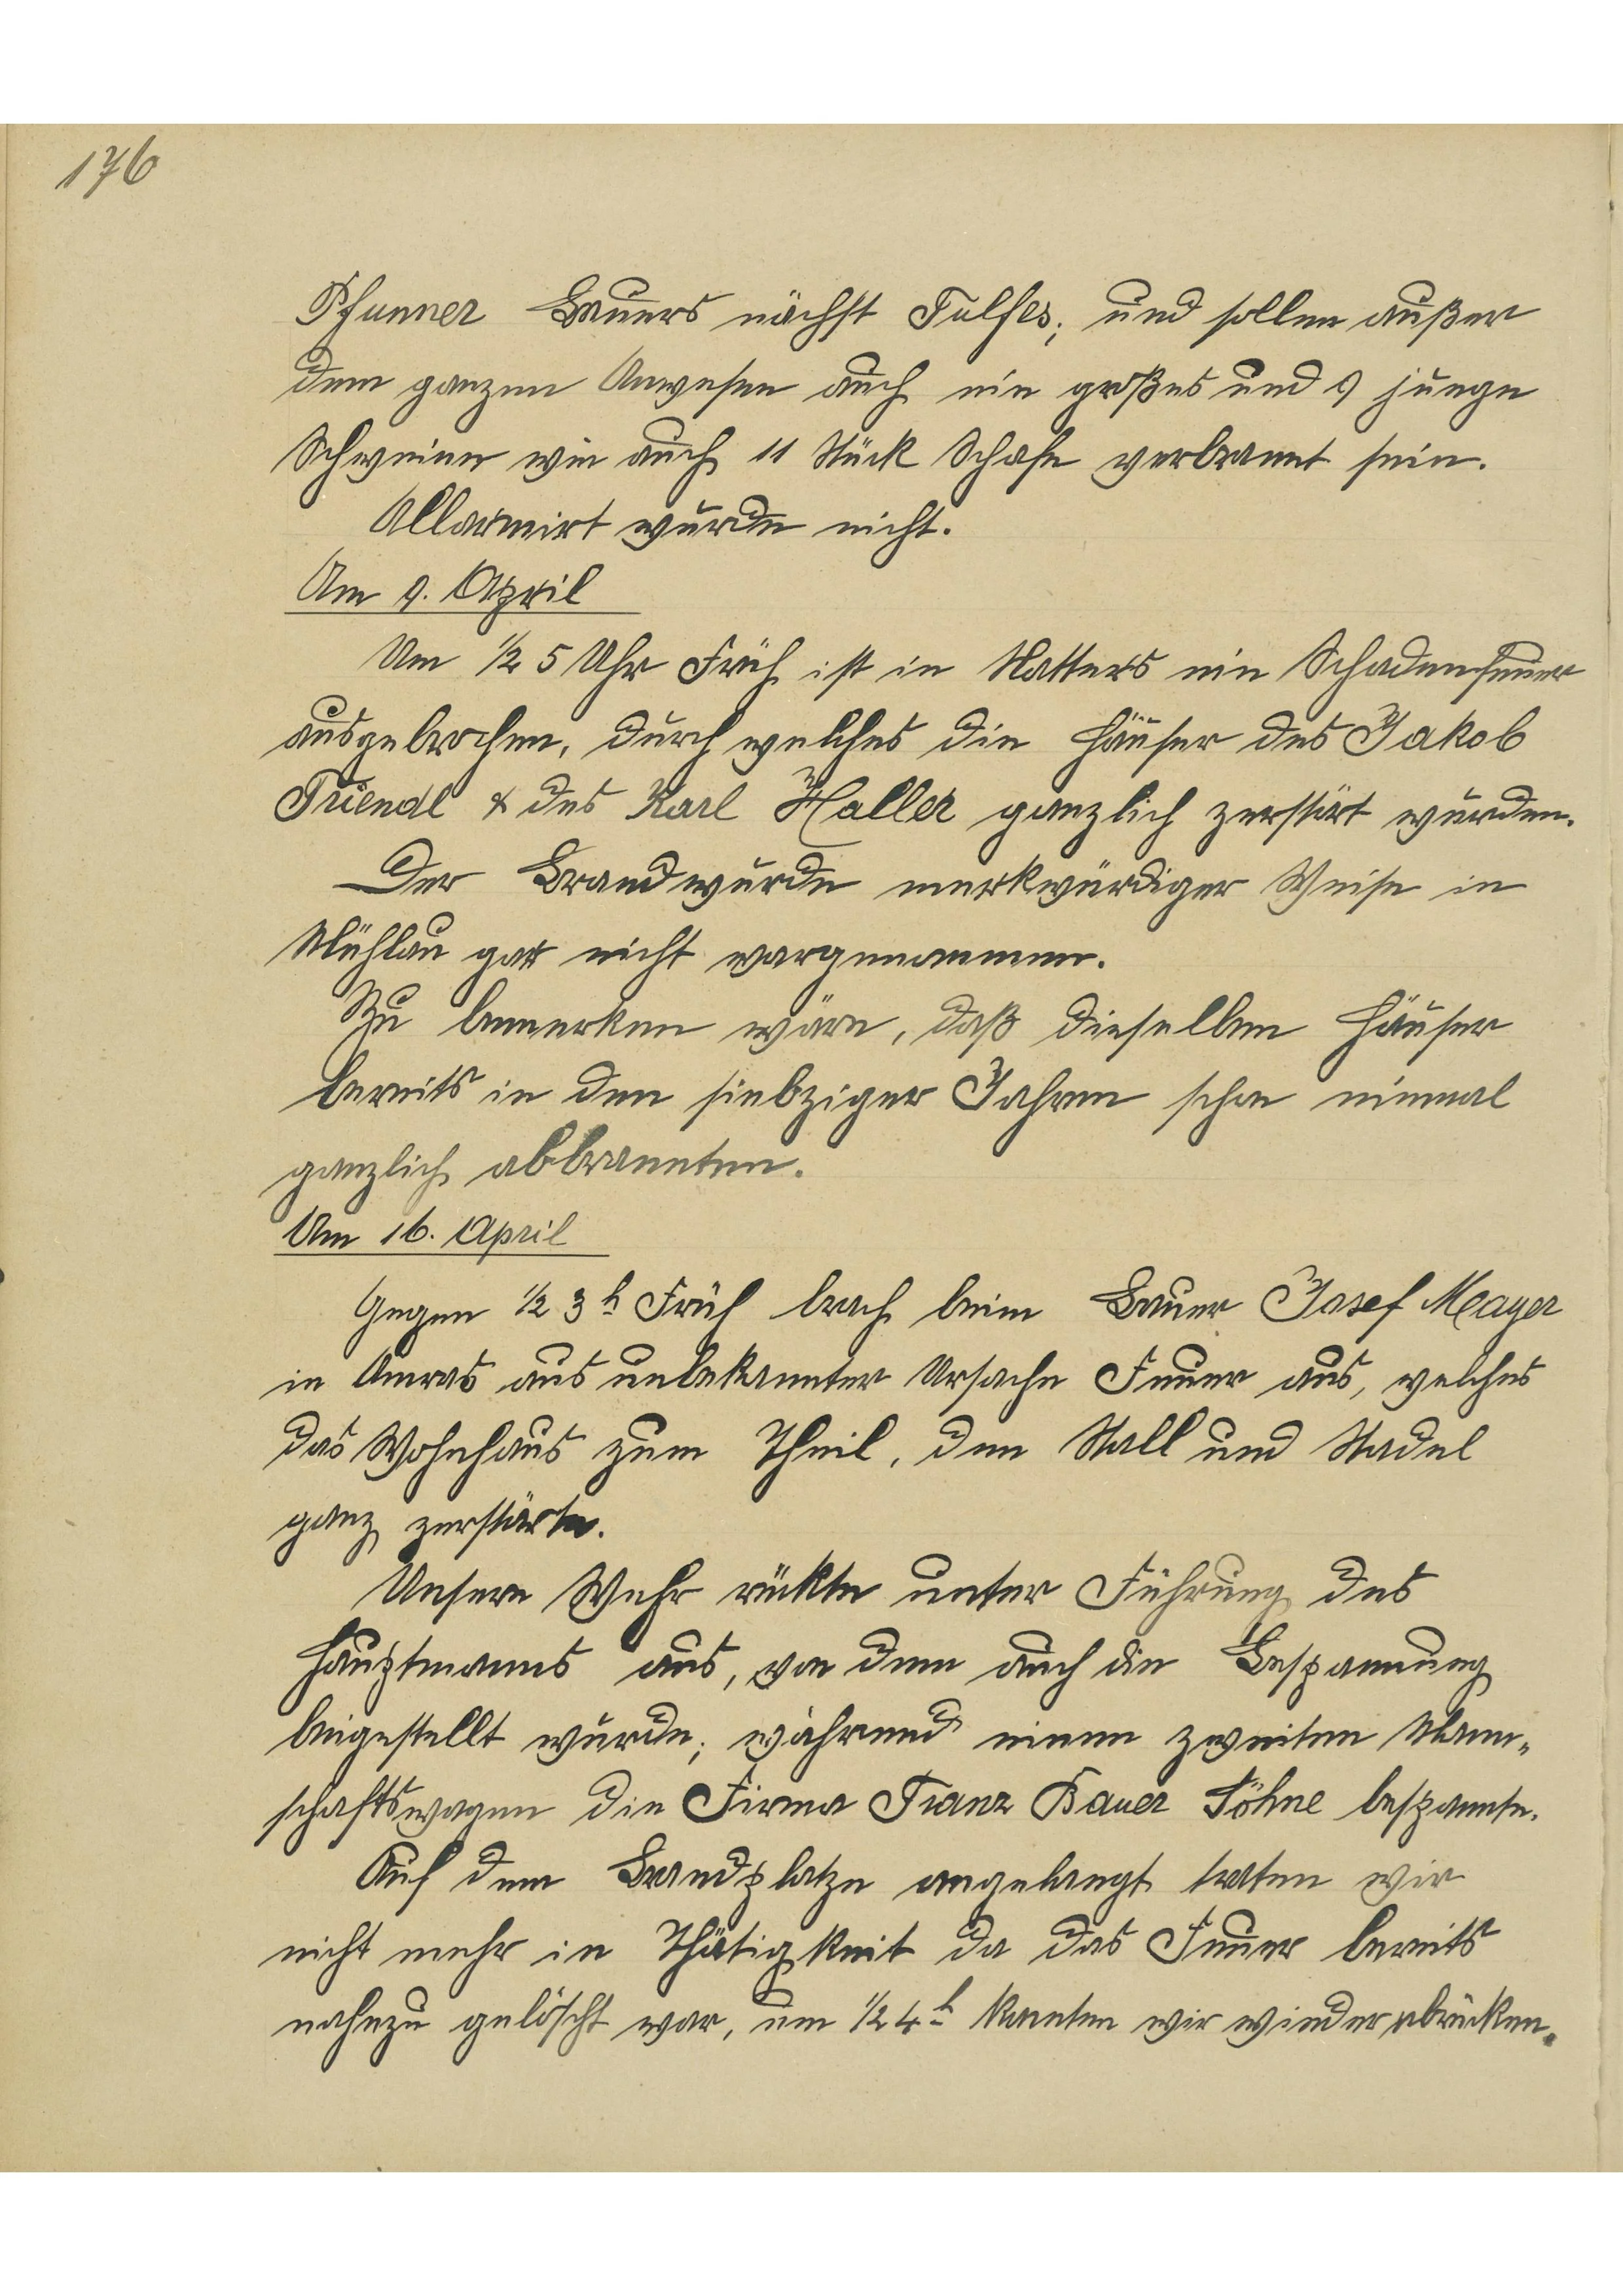 176
Pfunner Bauers nächst Tulfes; und sollen außer
dem ganzen Anwesen auch ein großes und 9 junge
Schweine wie auch 11 Stück Schafe verbrannt sein.
Allarmirt wurde nicht.
Am 9. April
Um ½ 5 Uhr Früh ist in Natters ein Schadenfeuer
ausgebrochen, durch welches die Häuser des Jakob
Triendl & des Karl Haller ganzlich zerstört wurden.
Der Brand wurde merkwürdiger Weise in
Mühlau gar nicht wargenommen.
Zu bemerken wäre, daß dieselben Häuser
bereits in den siebziger Jahren schon einmal
ganzlich abbrannten.
Am 16. April
Gegen ½ 3 h Früh brach beim Bauer Josef Mayer
in Amras aus unbekannter Ursache Feuer aus, welches
das Wohnhaus zum Theil, den Stall und Stadel
ganz zerstörte.
Unsere Wehr rükte unter Führung des
Hauptmanns aus, von dem auch die Bespannung
beigestellt wurde; während einen zweiten Mann„
schaftswagen die Firma Franz Bauer Söhne bespannte.
Auf dem Brandplatze angelangt traten wir
nicht mehr in Thätigkeit da das Feuer bereits
nahezu gelöscht war, um ½ 4 h konnten wir wieder abrücken.